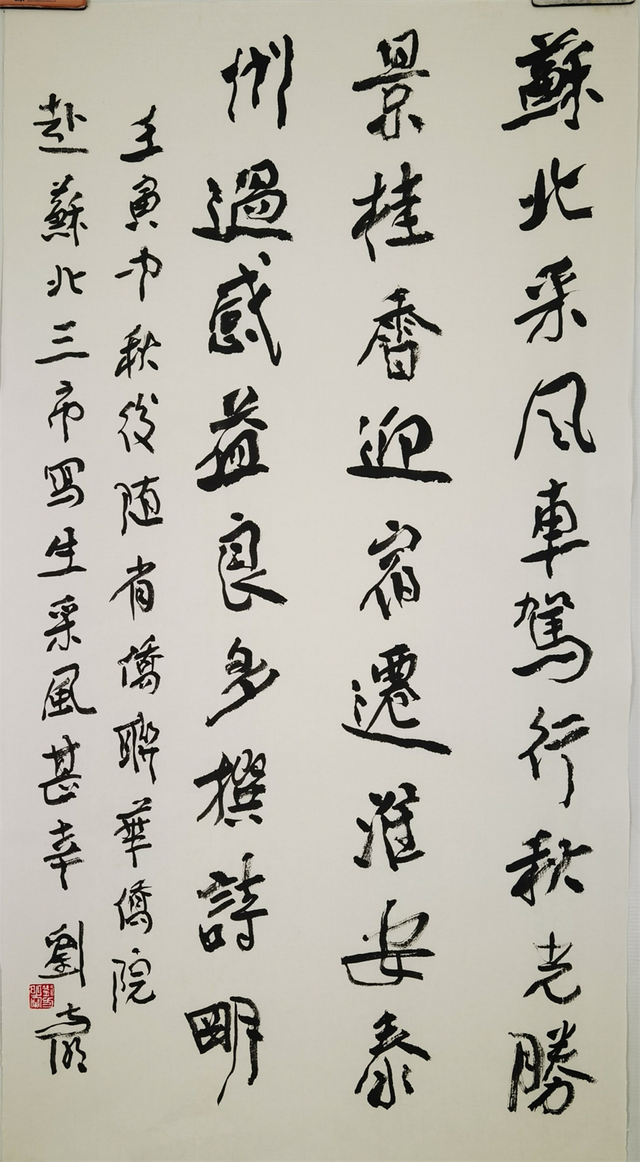 蘇北采风車駕行秋光勝
景桂香迎宿遷淮安泰
州過感益良多撰詩明
壬寅中秋後随省僑聯華僑院
赴蘇北三市寫生采風甚幸 劉